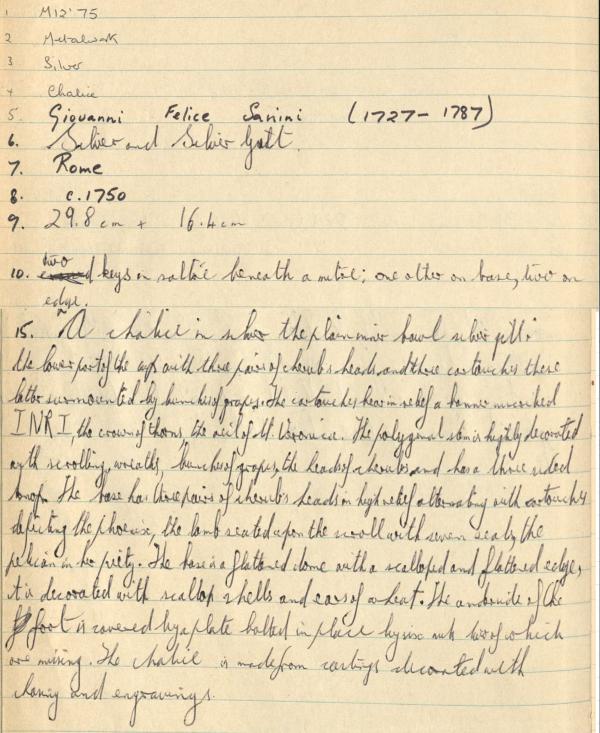 1 M12'75
2 Metalwork
3 Silver
4 Chalice
5. Giovanni Felice Sanini (1727-1787)
6. Silver and Silver Gilt.
7. Rome
8. c.1750
9. 29.8 cm + 16.4 cm
10. two keys in saltire beneath a mitre; one other on base, two on
edge.
15. A chalice in silver the plain inner bowl silver gilt:
the lower part of the cup with three pairs of cherub's heads, and three cartouches these
latter surmounted by bunches of grapes. The cartouches bear in relief a banner inscribed
INRI, the crown of thorns, the veil of St. Veronica. The polygonal stem is highly decorated
with scrolling, wreaths, bunches of grapes, the heads of cherubs and has a three sided
knop. The base has three pairs of cherub's heads in high relief alternating with cartouches
depicting the phoenix, the lamb seated upon the scroll with seven seals, the
pelican in her piety. The base is a flattened dome with a scalloped and flattened edge,
it is decorated with scallop shells and ears of wheat. The underside of the
foot is covered by a plate bolted in place by six nuts two of which
are missing. The chalice is made from castings decorated with
chasing and engravings.